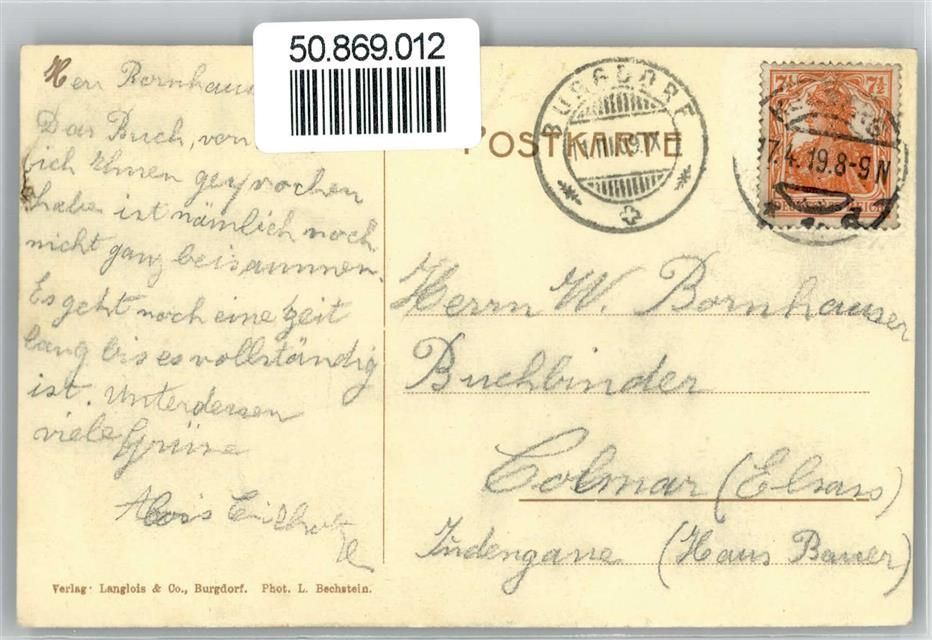 50.869.012
POSTKARTE
BURGDORF
7½ 7½
17.4.19.8-9N
Herr Bornhaus
Das Buch, von
ich Ihnen gesprochen
habe ist nämlich noch
nicht ganz beisammen.
Es geht noch eine Zeit
lang bis es vollständig
ist. Unterdessen
viele Grüsse
Alois
Herrn W. Bornhauser
Buchbinder
Colmar (Elsass)
Judengasse (Haus Bauer)
Verlag Langlois & Co., Burgdorf. Phot. L. Bechstein.